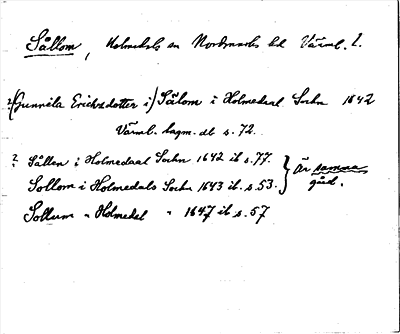 Sållom, Holmedals sn Nordmarks hd Värml. l.
?/(Gunnéla Erichzdotter i) Sålom i Holmedaal Sochn 1642
Värml. lagm. db s. 72.
? Sållen i Holmedaal Sochn 1642 ib s. 77. } Är samma
Sollom i Holmedals Sochn 1643 ib. s. 53. } gård.
Sollum " Holmedal " 1647 ib s. 57